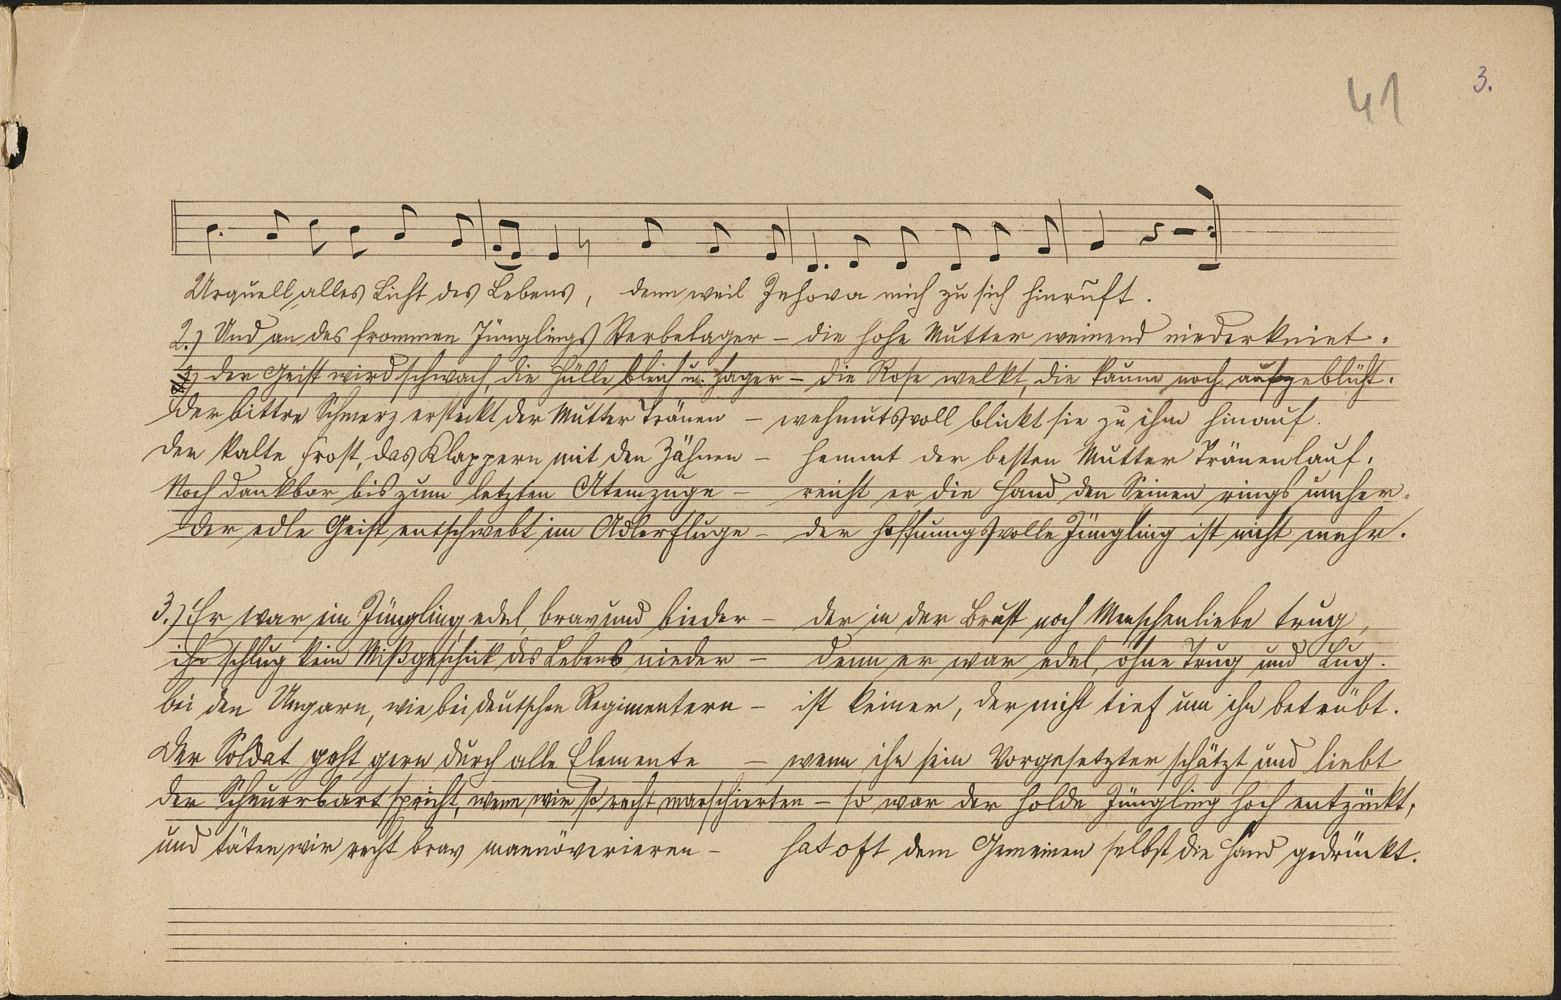 41
3.
Urquell alles Licht des Lebens, denn weil Jehova mich zu sich hinruft.
2.) Und an des frommen Jünglings Sterbelager – die hohe Mutter weinend niederkniet.
der Geist wird schwach, die Hülle bleich u. hager – die Rose welkt, die kaum noch aufgeblüht.
Der bittre Schmerz ersteckt der Mutter Tränen – wehmutsvoll blickt sie zu ihm hinauf.
Der kalte Frost, das Klappern mit den Zähnen – hemmt der besten Mutter Tränenlauf.
Noch dankbar bis zum letzten Atemzuge – reicht er die Hand den Seinen rings umher.
Der edle Geist entschwebt im Adlerfluge – der hoffnungsvolle Jüngling ist nicht mehr.
3.) Er war ein Jüngling, edel brav und bieder – der in der Brust noch Menschenliebe trug,
ihn schlug kein Mißgeschick des Lebens nieder – denn er war edel, ohne Trug und Lug.
bei den Ungarn, wie bei deutschen Regimentern – ist keiner, der nicht tief um ihn betrübt.
Der Soldat geht gern durch alle Elemente – wenn ihn sein Vorgesetzter schätzt und liebt
der Schnurrbart spricht, wenn wir so recht marschierten – so war der holde Jüngling hoch entzückt,
und täten wir recht brav mannöverieren – hat oft dem Gemeinen selbst die Hand gedrückt.